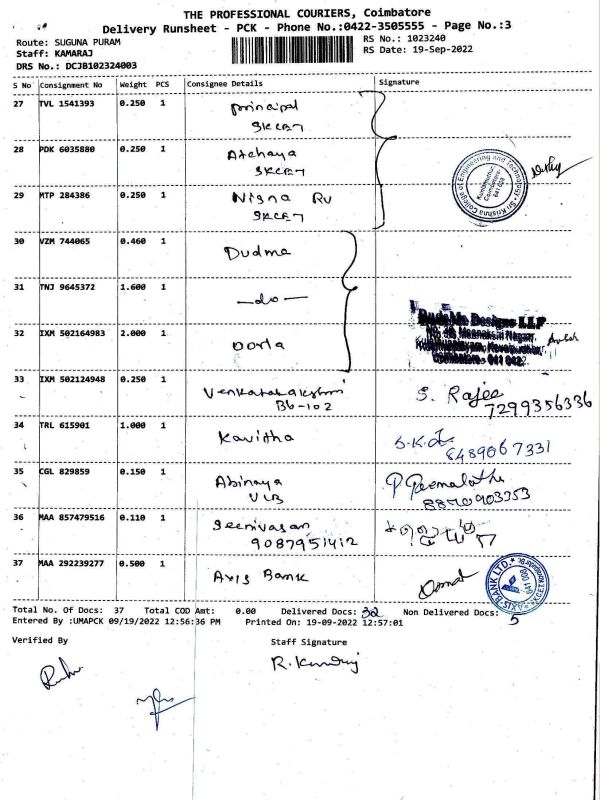 THE PROFESSIONAL COURIERS, Coimbatore
Delivery Runsheet - PCK - Phone No.:0422-3505555 - Page No.:3
Route: SUGUNA PURAM
RS No.: 1023240
Staff: KAMARAJ
RS Date: 19-Sep-2022
DRS No.: DCJB102324003
S No Consignment No Weight PCS Consignee Details Signature
27 TVL 1541393 0.250 1 principal
SKCET
28 PDK 6035880 0.250 1 Atchaya
SKCET
29 MTP 284386 0.250 1 Nisna RV
SKCET
Sri Krishna College of Engineering and Technology
Kuniamuthur
Coimbatore
641 008
30 VZM 744065 0.460 1 Dudma
31 TNJ 9645372 1.600 1 -do-
32 IXM 502164983 2.000 1 Dorta
Designs LLP
Coimbatore 641 042
33 IXM 502124948 0.250 1 Venkatalakshmi
B6-102
S. Rajee
7299356336
34 TRL 615901 1.000 1 Kavitha
8489067331
35 CGL 829859 0.150 1 Abinaya
VLB
36 MAA 857479516 0.110 1 Seenivasan
9087951412
37 MAA 292239277 0.500 1 Axis Bank
AXIS BANK LTD.
Total No. Of Docs: 37 Total COD Amt: 0.00 Delivered Docs: 32 Non Delivered Docs: 5
Entered By :UMAPCK 09/19/2022 12:56:36 PM Printed On: 19-09-2022 12:57:01
Verified By Staff Signature